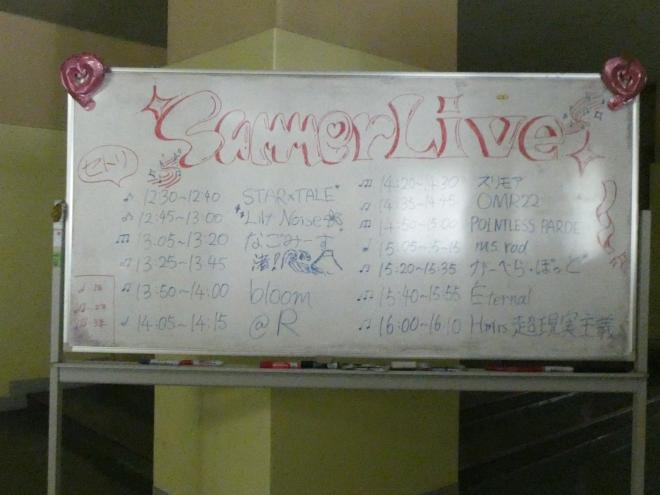 Summer Live
セトリ
12:30~12:40 STAR×TALE
12:45~13:00 Lily Noise
13:05~13:20 なごみーず
13:25~13:45 渚!!
13:50~14:00 bloom
14:05~14:15 @R
14:20~14:30 スリモア
14:35~14:45 OMR22
14:50~15:00 POINTLESS PARDE
15:05~15:15 m.s.rod
15:20~15:35 がーべら・ぽっと
15:40~15:55 Eternal
16:00~16:10 Hmrs超現実主義